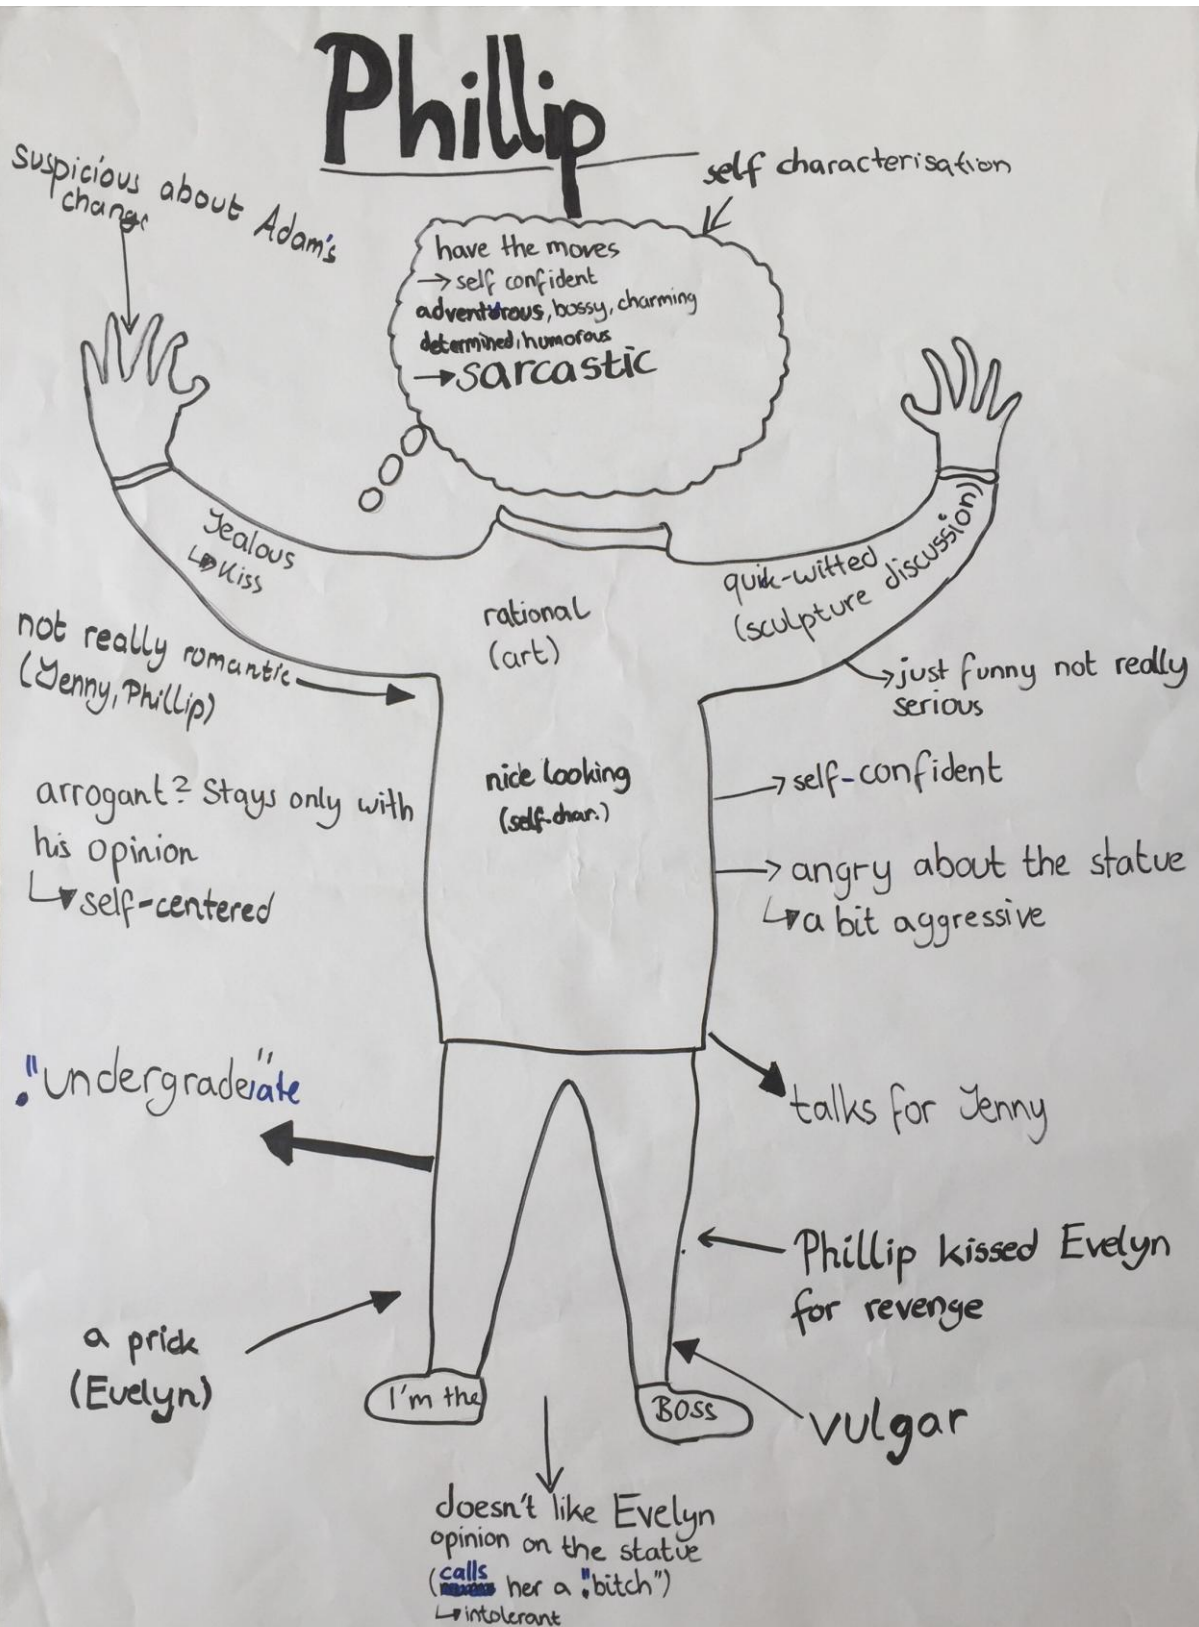 Phillip
self characterisation
suspicious about Adam's
change
have the moves
→ self confident
adventurous, bossy, charming
determined, humorous
→ sarcastic
Jealous
↳ Kiss
quik-witted
(sculpture discussion)
rational
(art)
not really romantic
(Jenny, Phillip)
→ just funny not really
serious
nice looking
(self-char.)
→ self-confident
arrogant? Stays only with
his opinion
↳ self-centered
→ angry about the statue
↳ a bit aggressive
"undergradeiate"
talks for Jenny
Phillip kissed Evelyn
for revenge
a prick
(Evelyn)
I'm the
BOSS
vulgar
doesn't like Evelyn
opinion on the statue
(calls her a "bitch")
↳ intolerant